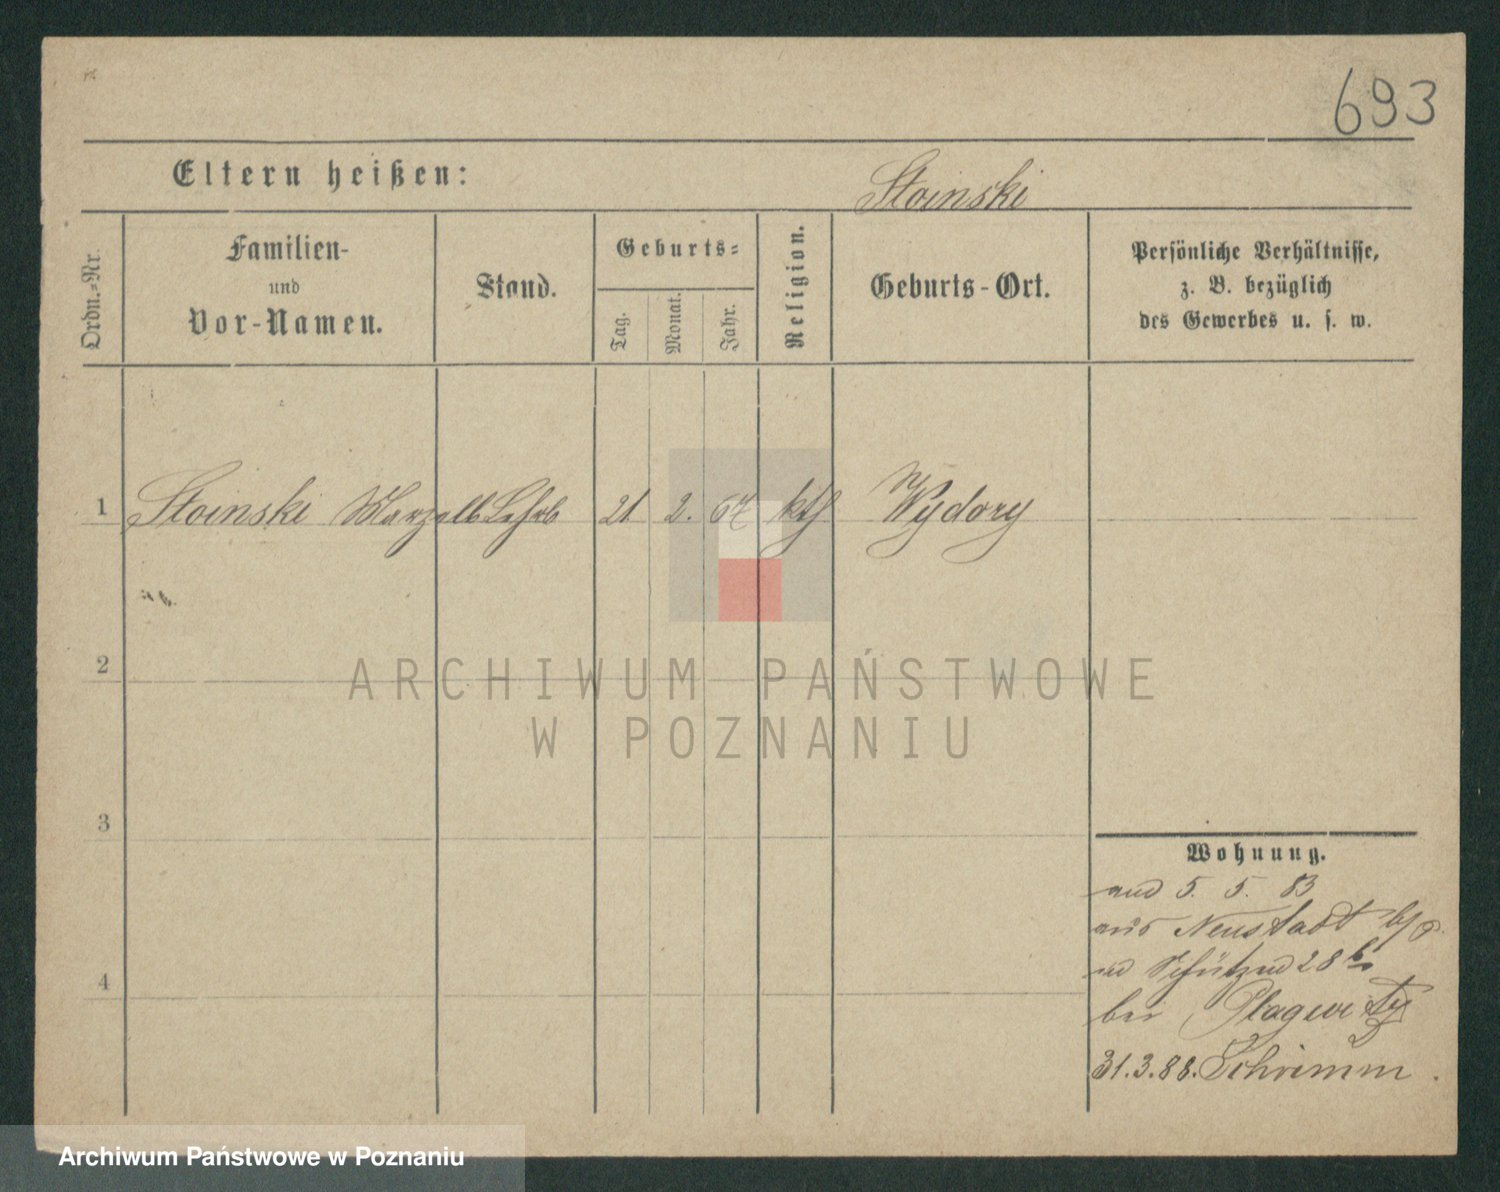 693
Eltern heißen:
Stoinski
Ordn.-Nr.
Familien-
und
Vor-Namen.
Stand.
Geburts-
Tag.
Monat.
Jahr.
Religion.
Geburts-Ort.
Persönliche Verhältnisse,
z. B. bezüglich
des Gewerbes u. s. w.
1 Stoinski Marzell Lehrb 21 2. 67 kth Wydory
2
3
4
ARCHIWUM PAŃSTWOWE
W POZNANIU
Wohnung.
5. 5. 83
aus Neustadt b/P
Schützen 28
bei Plagwitz
31.3.88. Schrimm.
Archiwum Państwowe w Poznaniu